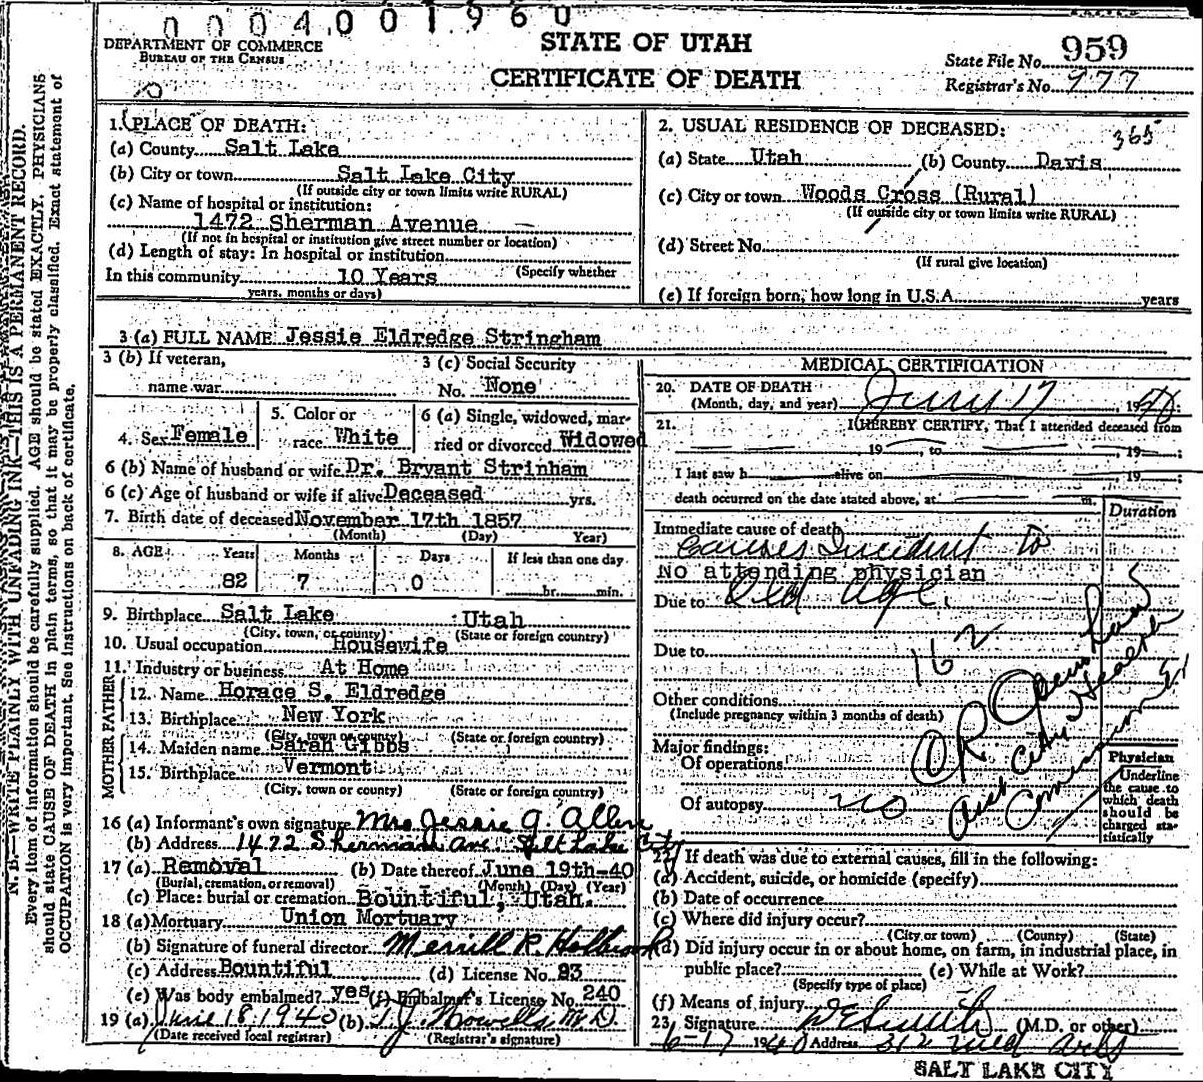 0004001960
DEPARTMENT OF COMMERCE
BUREAU OF THE CENSUS
STATE OF UTAH
CERTIFICATE OF DEATH
State File No. 959
Registrar's No. 977
N. B.—WRITE PLAINLY WITH UNFADING INK—THIS IS A PERMANENT RECORD.
Every item of information should be carefully supplied. AGE should be stated EXACTLY. PHYSICIANS
should state CAUSE OF DEATH in plain terms, so that it may be properly classified. Exact statement of
OCCUPATION is very important. See instructions on back of certificate.
1. PLACE OF DEATH:
(a) County Salt Lake
(b) City or town Salt Lake City
(If outside city or town limits write RURAL)
(c) Name of hospital or institution:
1472 Sherman Avenue
(If not in hospital or institution give street number or location)
(d) Length of stay: In hospital or institution
(Specify whether
In this community 10 Years
years, months or days)
2. USUAL RESIDENCE OF DECEASED:
365
(a) State Utah (b) County Davis
(c) City or town Woods Cross (Rural)
(If outside city or town limits write RURAL)
(d) Street No.
(If rural give location)
(e) If foreign born, how long in U.S.A. years
3 (a) FULL NAME Jessie Eldredge Stringham
3 (b) If veteran,
name war
3 (c) Social Security
No. None
4. Sex Female
5. Color or
race White
6 (a) Single, widowed, mar-
ried or divorced Widowed
6 (b) Name of husband or wife Dr. Bryant Strinham
6 (c) Age of husband or wife if alive Deceased yrs.
7. Birth date of deceased November 17th 1857
(Month) (Day) Year)
8. AGE Years Months Days If less than one day
82 7 0 hr. min.
9. Birthplace Salt Lake Utah
(City, town, or county) (State or foreign country)
10. Usual occupation Housewife
11. Industry or business At Home
FATHER
12. Name Horace S. Eldredge
13. Birthplace New York
(City, town or county) (State or foreign country)
MOTHER
14. Maiden name Sarah Gibbs
15. Birthplace Vermont
(City, town or county) (State or foreign country)
16 (a) Informant's own signature Mrs Jessie G. Allen
(b) Address 1472 Sherman Ave. Salt Lake City
17 (a) Removal (b) Date thereof June 19th-40
(Burial, cremation, or removal) (Month) (Day) (Year)
(c) Place: burial or cremation Bountiful, Utah.
18 (a) Mortuary Union Mortuary
(b) Signature of funeral director Merrill R. Holbrook
(c) Address Bountiful (d) License No. 93
(e) Was body embalmed? yes (f) Embalmer's License No. 240
19 (a) June 18 1940 (b) T. J. Howells, M.D.
(Date received local registrar) (Registrar's signature)
MEDICAL CERTIFICATION
20. DATE OF DEATH
(Month, day, and year) June 17, 1940
21. I HEREBY CERTIFY, That I attended deceased from
, 19 , to , 19 ;
I last saw h alive on , 19 ;
death occurred on the date stated above, at m.
Duration
Immediate cause of death
Causes Incident to
No attending physician
Due to Old Age.
Due to
162
Other conditions
(Include pregnancy within 3 months of death)
Major findings:
Of operations
Of autopsy no
OK
City Health
Physician
Underline
the cause to
which death
should be
charged sta-
tistically
22. If death was due to external causes, fill in the following:
(a) Accident, suicide, or homicide (specify)
(b) Date of occurrence
(c) Where did injury occur?
(City or town) (County) (State)
(d) Did injury occur in or about home, on farm, in industrial place, in
public place? (e) While at Work?
(Specify type of place)
(f) Means of injury
23. Signature (M.D. or other)
6-17 1940 Address 312 Med Arts
SALT LAKE CITY